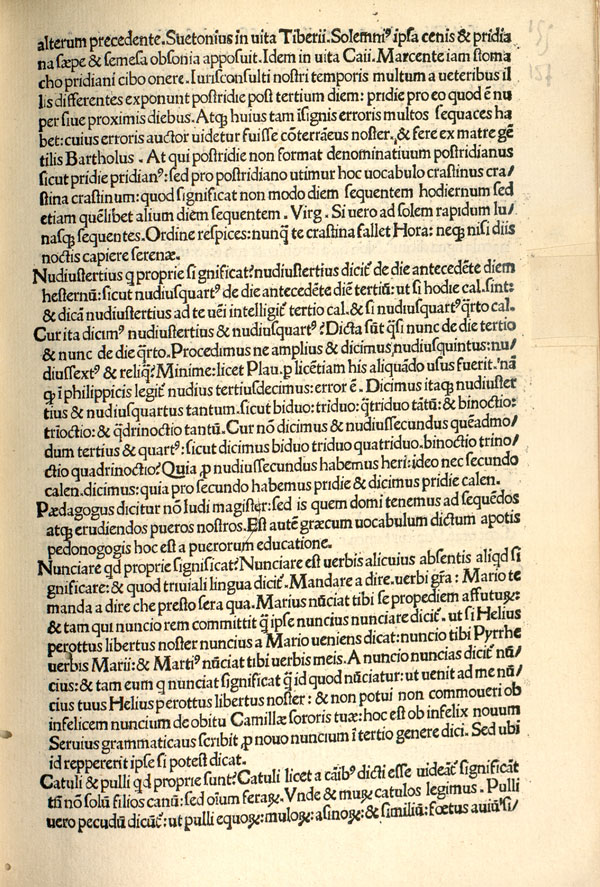 alterum precedente. Suetonius in uita Tiberii. Solemniꝰ ipsa cenis & pridia
na sæpe & semesa obsonia apposuit. Idem in uita Caii. Marcente iam stoma
cho pridiani cibo onere. Iurisconsulti nostri temporis multum a ueteribus il
lis differentes exponunt postridie post tertium diem: pridie pro eo quod ē nu
per siue proximis diebus. Atqꝫ huius tam īsignis erroris multos sequaces ha
bet: cuius erroris auctor uidetur fuisse cōterraęus noster, & fere ex matre gē
tilis Bartholus. At qui postridie non format denominatiuum postridianus
sicut pridie pridianꝰ: sed pro postridiano utimur hoc uocabulo crastinus cra/
stina crastinum: quod significat non modo diem sequentem hodiernum sed
etiam quēlibet alium diem sequentem. Virg. Si uero ad solem rapidum lu/
nasqꝫ sequentes. Ordine respices: nunq̄ te crastina fallet Hora: neqꝫ nisi diis
noctis capiere serenæ.
Nudiustertius q proprie significat? nudiustertius dicit̄ de die antecedēte diem
hesternū: sicut nudiusquartꝰ de die antecedēte diē tertiū: ut si hodie cal. sint:
& dicā nudiustertius ad te uēi intelligit̄ tertio cal. & si nudiusquartꝰ q̄rto cal.
Cur ita dicimꝰ nudiustertius & nudiusquartꝰ? Dicta sūt q̄si nunc de die tertio
& nunc de die q̄rto. Procedimus ne amplius & dicimus nudiusquintus: nu/
diussextꝰ & reliq̄? Minime: licet Plau. ꝑ licētiam his aliquādo usus fuerit. nā
qꝫ ī philippicis legit̄ nudius tertiusdecimus: error ē. Dicimus itaqꝫ nudiuster
tius & nudiusquartus tantum. sicut biduo: triduo: q̄triduo tātū: & binoctio:
trioctio: & q̄drinoctio tantū. Cur nō dicimus & nudiussecundus quēadmo/
dum tertius & quartꝰ: sicut dicimus biduo triduo quatriduo. binoctio trino/
ctio quadrinoctio? Quia ꝓ nudiussecundus habemus heri: ideo nec secundo
calen. dicimus: quia pro secundo habemus pridie & dicimus pridie calen.
Pædagogus dicitur nō ludi magister: sed is quem domi tenemus ad sequēdos
atqꝫ erudiendos pueros nostros. Est autē græcum uocabulum dictum apotis
pedonogogis hoc est a puerorum educatione.
Nunciare qd proprie significat? Nunciare est uerbis alicuius absentis aliqd si
gnificare: & quod triuiali lingua dicit̄. Mandare a dire. uerbi gr̄a: Mario te
manda a dire che presto sera qua. Marius nūciat tibi se propediem affuturꝫ:
& tam qui nuncio rem committit q̄ ipse nuncius nunciare dicit̄. ut si Helius
perottus libertus noster nuncius a Mario ueniens dicat: nuncio tibi Pyrrhe
uerbis Marii: & Martiꝰ nūciat tibi uerbis meis. A nuncio nuncias dicit̄ nū/
cius: & tam eum q nunciat significat q̄ id quod nūciatur: ut uenit ad me nū/
cius tuus Helius perottus libertus noster: & non potui non commoueri ob
infelicem nuncium de obitu Camillæ sororis tuæ: hoc est ob infelix nouum
Seruius grammaticaus scribit ꝓ nouo nuncium ī tertio genere dici. Sed ubi
id reppererit ipse si potest dicat.
Catuli & pulli qd proprie sunt? Catuli licet a cāibꝰ dicti esse uideāt̄ significāt
tn̄ nō solū filios canū: sed oīum feraꝝ. Vnde & muꝝ catulos legimus. Pulli
uero pecudū dicūt̄: ut pulli equoꝝ: muloꝝ: asinoꝝ: & similiū: fœtus auiū si/